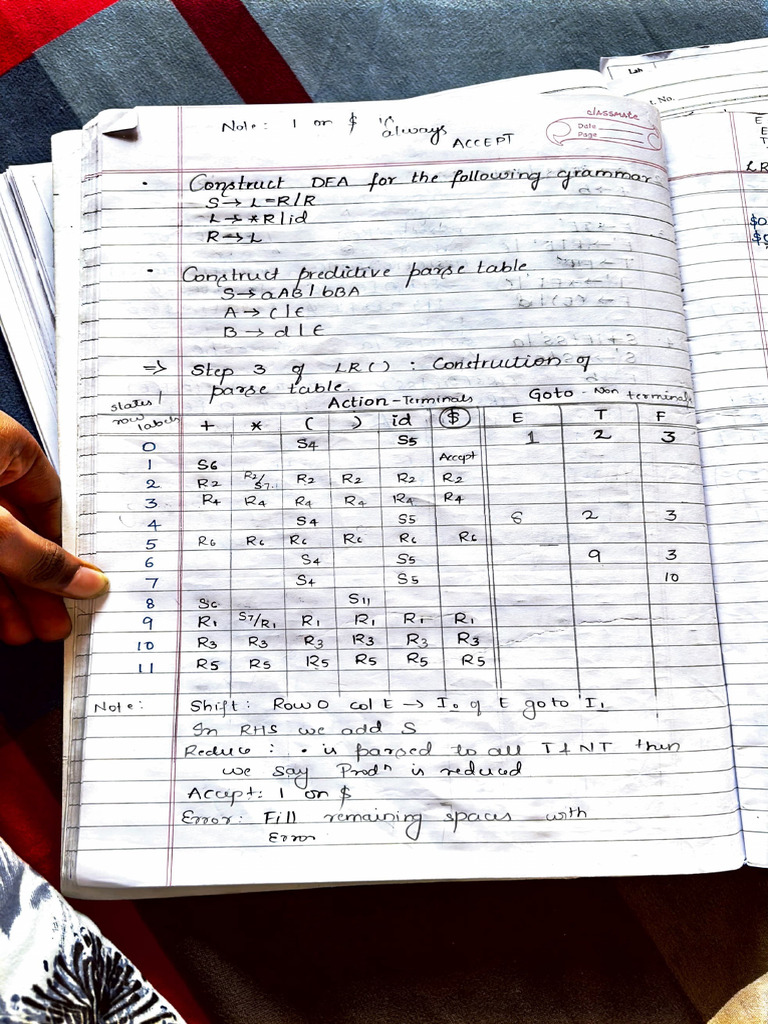 Note: 1 on $ is always ACCEPT
classmate
Date
Page
• Construct DFA for the following grammar
S → L=R/R
L → *R/id
R → L
• Construct predictive parse table
S → aAB / bBA
A → c/ε
B → d/ε
=> Step 3 of LR() : Construction of
parse table.
states/ row labels Action-Terminals Goto - Non terminals
+ * ( ) id $ E T F
0 S4 S5 1 2 3
1 S6 Accept
2 R2 R2/S7 R2 R2 R2 R2
3 R4 R4 R4 R4 R4 R4
4 S4 S5 8 2 3
5 R6 R6 R6 R6 R6 R6
6 S4 S5 9 3
7 S4 S5 10
8 S6 S11
9 R1 S7/R1 R1 R1 R1 R1
10 R3 R3 R3 R3 R3 R3
11 R5 R5 R5 R5 R5 R5
Note: Shift: Row 0 col E → I0 of E goto I1
In RHS we add S
Reduce : • is parsed to all T & NT then
we say Prodn is reduced
Accept: 1 on $
Error: Fill remaining spaces with
Error